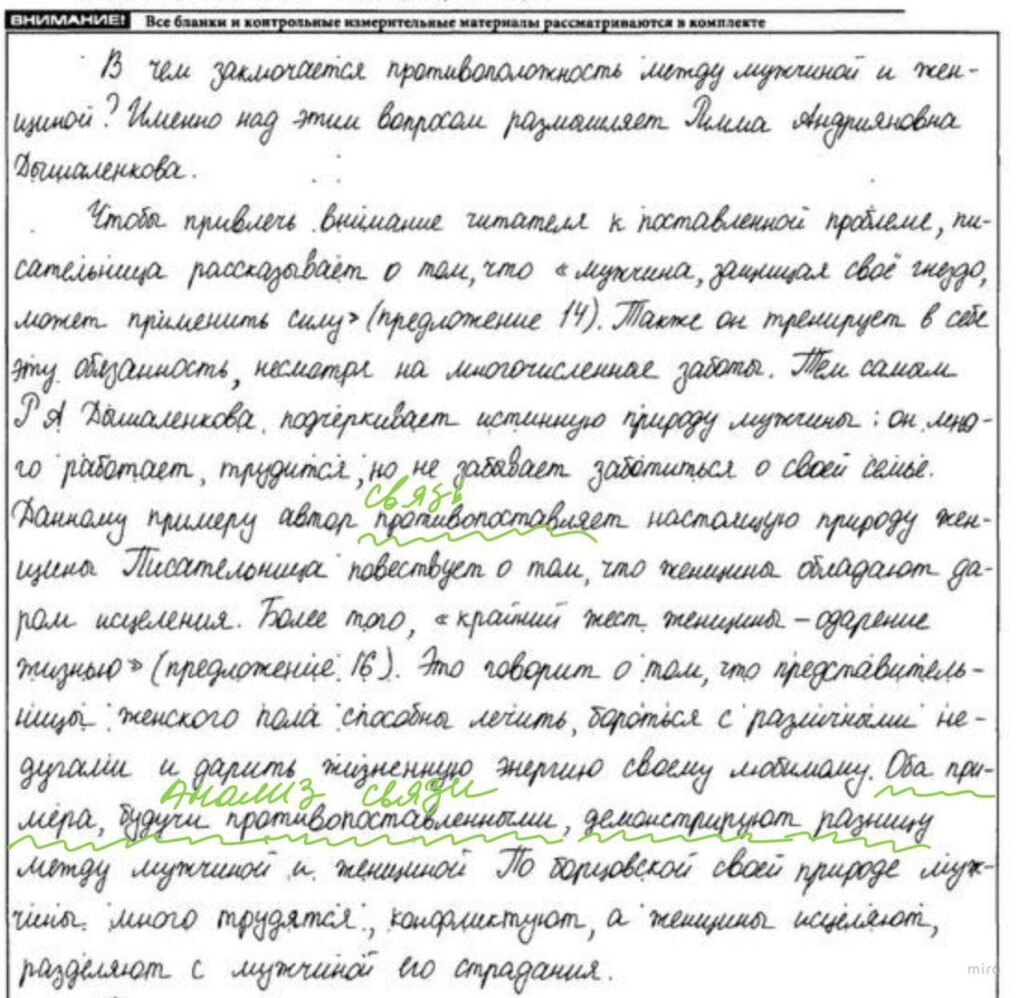 ВНИМАНИЕ! Все бланки и контрольные измерительные материалы рассматриваются в комплекте
В чем заключается противоположность между мужчиной и жен-
щиной? Именно над этим вопросом размышляет Римма Андрияновна
Дышаленкова.
Чтобы привлечь внимание читателя к поставленной проблеме, пи-
сательница рассказывает о том, что «мужчина, защищая своё гнездо,
может применить силу» (предложение 14). Также он тренирует в себе
эту обязанность, несмотря на многочисленные заботы. Тем самым
Р А Дышаленкова подчёркивает истинную природу мужчины: он мно-
го работает, трудится, но не забывает заботиться о своей семье.
связь
Данному примеру автор противопоставляет настоящую природу жен-
щины Писательница повествует о том, что женщины обладают да-
ром исцеления. Более того, «крайний жест женщины – одарение
жизнью» (предложение 16). Это говорит о том, что представитель-
ницы женского пола способны лечить, бороться с различными не-
дугами и дарить жизненную энергию своему любимому. Оба при-
анализ связи
мера, будучи противопоставленными, демонстрируют разницу
между мужчиной и женщиной По борцовской своей природе муж-
чины много трудятся, конфликтуют, а женщины исцеляют,
разделяют с мужчиной его страдания.
miro